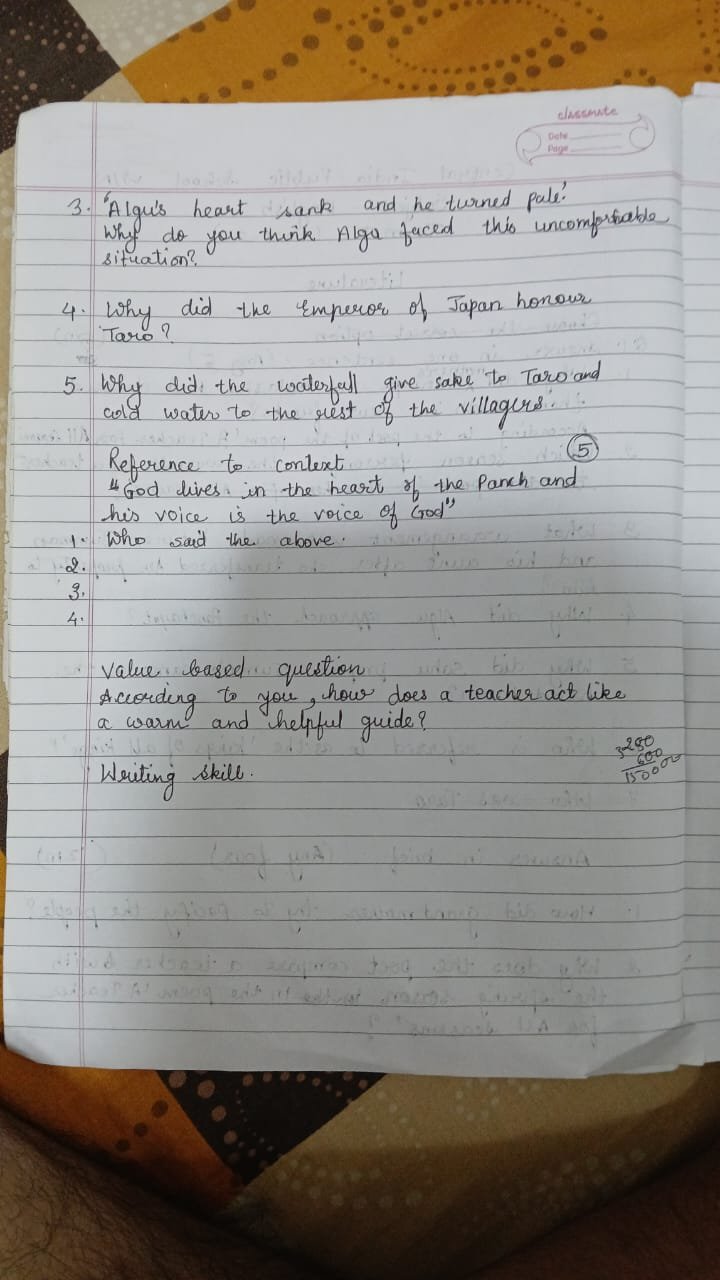 classmate
Date
Page
3. 'Algu's heart sank and he turned pale.'
Why do you think Algu faced this uncomfortable
situation?
4. Why did the Emperor of Japan honour
Taro?
5. Why did the waterfall give sake to Taro and
cold water to the rest of the villagers.
Reference to context (5)
"God lives in the heart of the Panch and
his voice is the voice of God"
1. Who said the above.
2.
3.
4.
Value based question
According to you, how does a teacher act like
a warm and helpful guide?
Writing skill.
250
600
150000